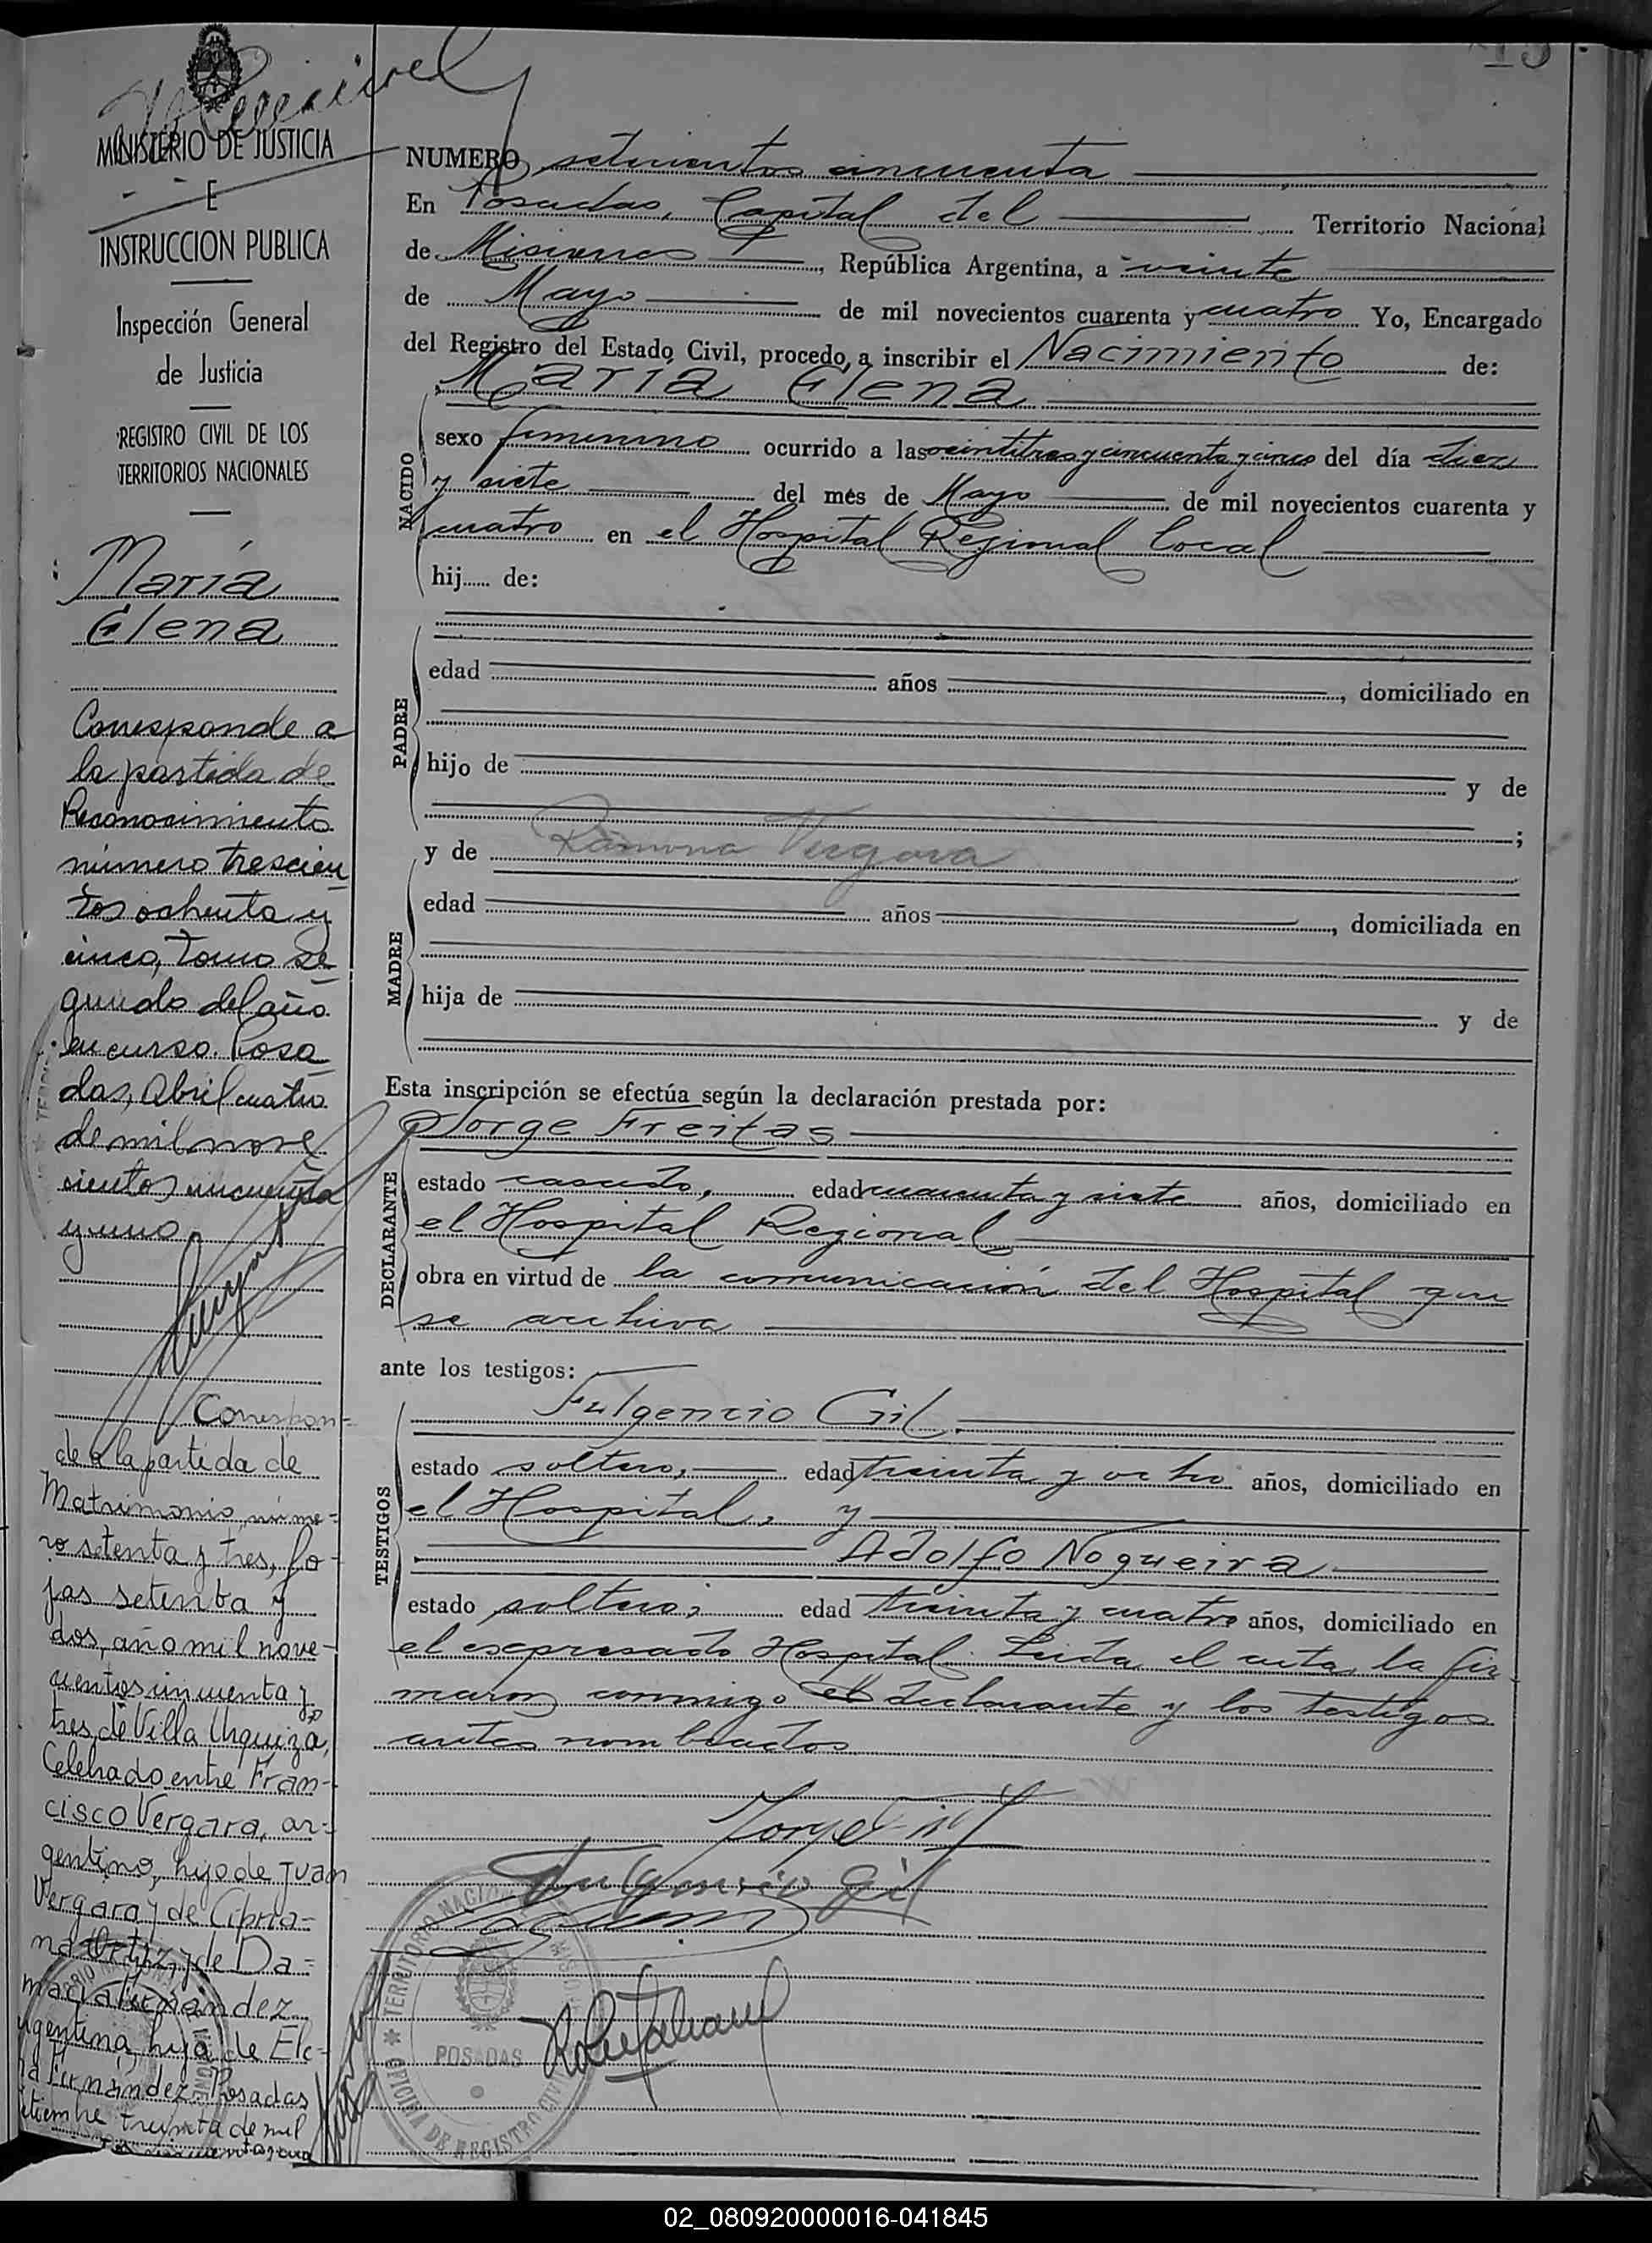 MINISTERIO DE JUSTICIA
E
INSTRUCCION PUBLICA
Inspección General
de Justicia
REGISTRO CIVIL DE LOS
TERRITORIOS NACIONALES
María
Elena
Corresponde a
la partida de
Reconocimiento
número trescien
tos ochenta y
cinco, tomo se
gundo del año
en curso. Posa
das, Abril cuatro
de mil nove
cientos cincuenta
y uno
Correspon=
de a la partida de
Matrimonio, núme=
ro setenta y tres, fo-
jas setenta y
dos, año mil nove-
cientos cincuenta y
tres, de Villa Urquiza,
Celebrado entre Fran-
cisco Vergara, ar=
gentino, hijo de Juan
Vergara y de Cipria=
na Ortiz, y de Da=
macia Fernández
argentina, hija de Ele-
na Fernández. Posadas
treinta de mil
NUMERO setecientos cincuenta
En Posadas, Capital del Territorio Nacional
de Misiones, República Argentina, a veinte
de Mayo de mil novecientos cuarenta y cuatro Yo, Encargado
del Registro del Estado Civil, procedo, a inscribir el Nacimiento de:
María Elena
NACIDO
sexo femenino ocurrido a las veintitres y cincuenta y cinco del día diez
y siete del mes de Mayo de mil novecientos cuarenta y
cuatro en el Hospital Regional local
hij...... de:
PADRE
edad años, domiciliado en
hijo de y de
;
y de Ramona Vergara
MADRE
edad años, domiciliada en
hija de y de
Esta inscripción se efectúa según la declaración prestada por:
Jorge Freitas
DECLARANTE
estado casado, edad cuarenta y siete años, domiciliado en
el Hospital Regional
obra en virtud de la comunicación del Hospital que
se archiva
ante los testigos:
TESTIGOS
Fulgencio Gil
estado soltero, edad treinta y ocho años, domiciliado en
el Hospital, y
Adolfo Nogueira
estado soltero, edad treinta y cuatro años, domiciliado en
el expresado Hospital. Leida el acta, la fir
maron conmigo el declarante y los testigos
antes nombrados
Fulgencio Gil
TERRITORIO NACIONAL
POSADAS
OFICINA DE REGISTRO CIVIL
02_080920000016-041845